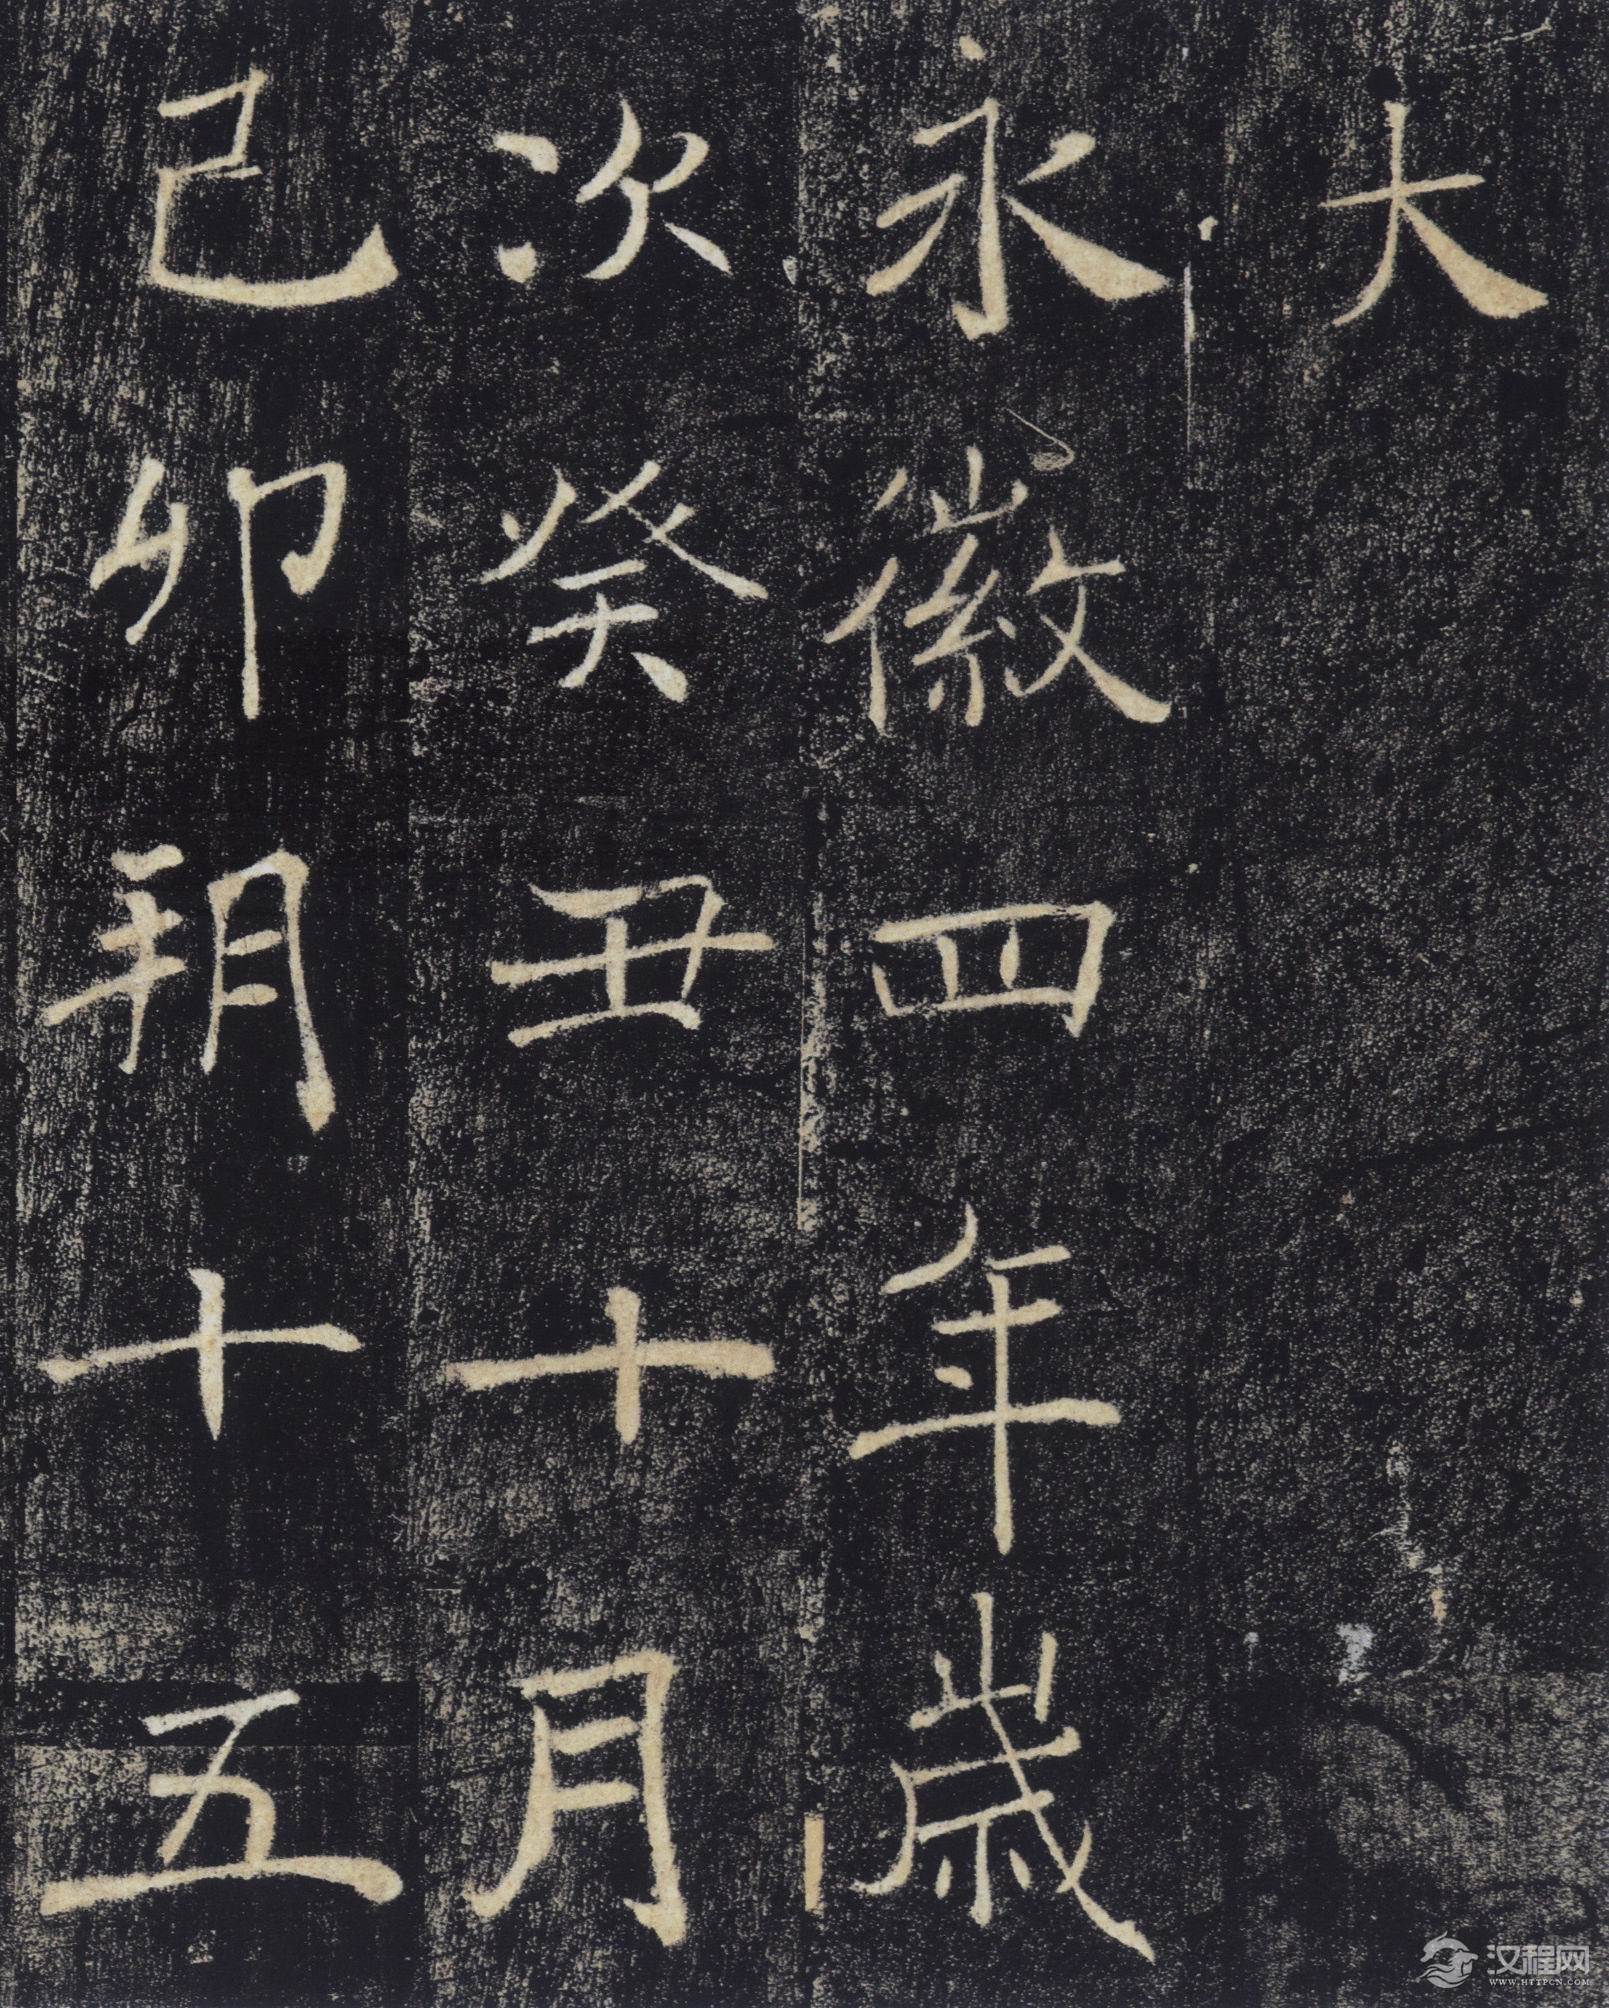 大
永徽四年歲
次癸丑十月
己卯朔十五
汉程网
WWW.HTTPCN.COM